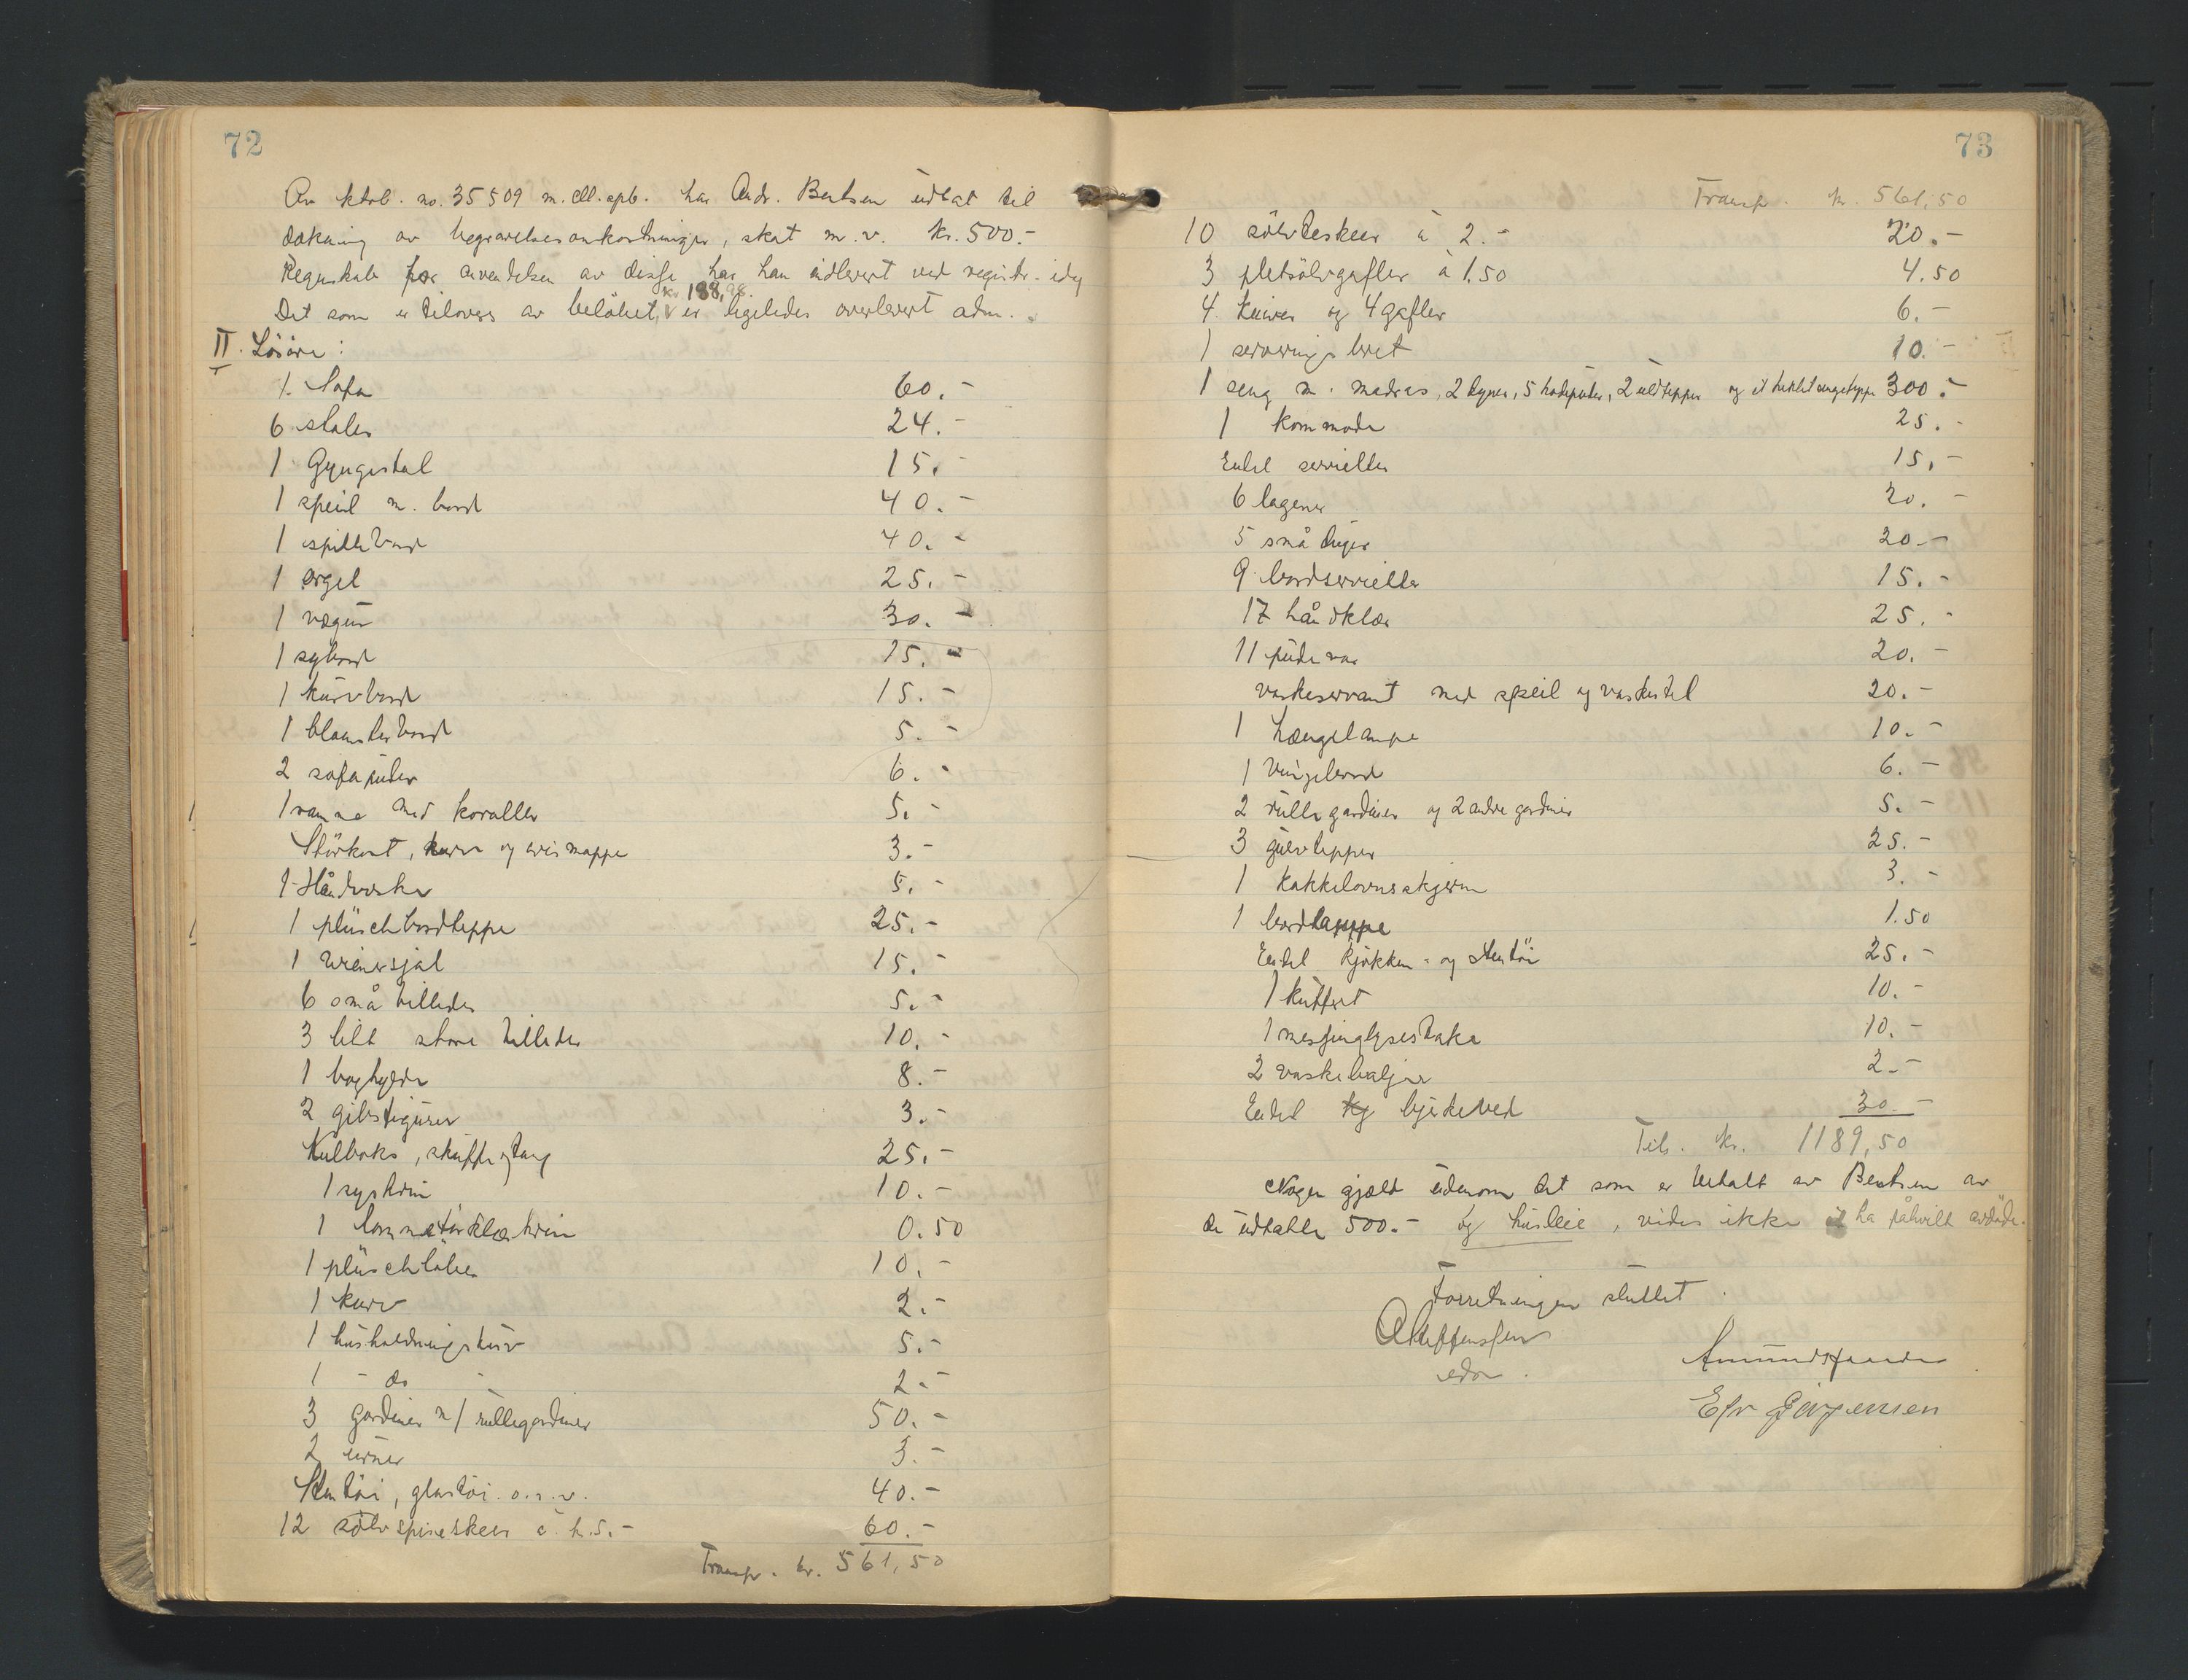 72
Av ktrb. no. 35509 m. spb. har Andr. Bentsen uttat til
dækning av begravelsesomkostninger, skat m.v. kr. 500.-
Regnskab for anvendelsen av disse har han utlevert ved registr. idag
Det som er tilovers av beløpet, kr 188,98. er ligeledes overlevert adm.
II. Lösöre:
1. Sofa 60.-
6 stoler 24.-
1 Gyngestol 15.-
1 speil m. bord 40.-
1 spillebord 40.-
1 orgel 25.-
1 vægur 30.-
1 sybord 15.-
1 kurvbord 15.-
1 blomsterbord 5.-
2 sofaputer 6.-
1 ramme med koraller 5.-
Störkort, kurv og avismappe 3.-
1 Håndveske 5.-
1 plüschbordteppe 25.-
1 wienersjal 15.-
6 små billeder 5.-
3 litt store billeder 10.-
1 boghylde 8.-
2 gibsfigurer 3.-
Kulboks, skuffe og tang 25.-
1 syskrin 10.-
1 0.50
1 plüschlöber 10.-
1 kurv 2.-
1 husholdningskurv 5.-
1 - do - 2.-
3 gardiner m/ rullegardiner 50.-
2 urner 3.-
Stentöi, glastöi o.s.v. 40.-
12 sölvspiseskeer à kr. 5.- 60.-
Transp. kr. 561,50
73
Transp. kr. 561,50
10 sölvteskeer à 2.- 20.-
3 pletsölvgafler à 1.50 4.50
4 kniver og 4 gafler 6.-
1 serveringsbret 10.-
1 seng m. madras, 2 dyner, 5 hodeputer, 2 uldtepper og et heklet sengeteppe 300.-
1 kommode 25.-
Endel servietter 15.-
6 lagener 20.-
5 små duger 20.-
9 bordservietter 15.-
17 håndklær 25.-
11 putevar 20.-
vaskeservant med speil og vaskestel 20.-
1 hængelampe 10.-
1 vingebord 6.-
2 rullegardiner og 2 andre gardiner 5.-
3 gulvtepper 25.-
1 kakkelovnsskjerm 3.-
1 bordlampe 1.50
Endel kjökken- og stentöi 25.-
1 kuffert 10.-
1 messinglysestake 10.-
2 vaskebaljer 2.-
Endel bjerkeved 30.-
Tils. kr. 1189,50
Nogen gjæld utenom det som er betalt av Bentsen av
de uttatte 500.- og husleie, vides ikke at ha påhvilt avdöde.
Forretningen sluttet.
A Steffensen
edsv.
Amundsgaarden
Efr Jörgensen